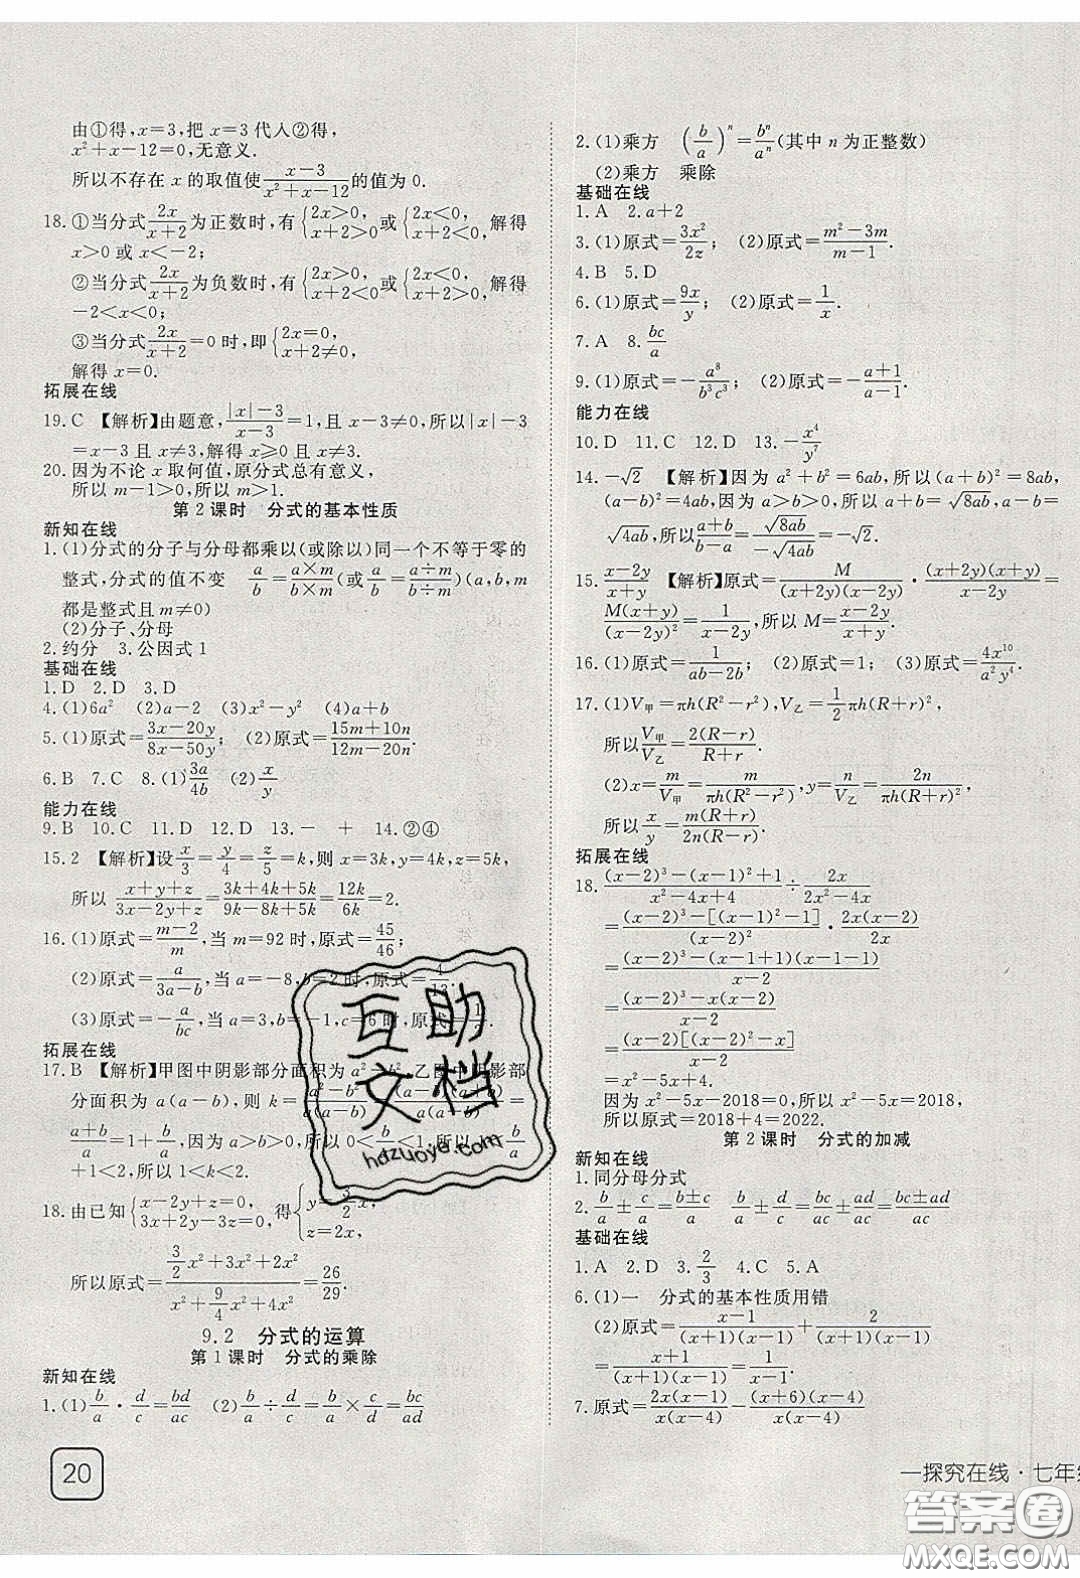 由①得,x=3,把 x=3 代入②得,
x²+x-12=0,无意义.
所以不存在 x 的取值使(x-3)/(x²+x-12)的值为 0.
18.①当分式2x/(x+2)为正数时,有{2x>0, x+2>0或{2x<0, x+2<0,解得
x>0 或 x<-2;
②当分式2x/(x+2)为负数时,有{2x>0, x+2<0或{2x<0, x+2>0,解得
-2<x<0;
③当分式2x/(x+2)=0 时,即{2x=0, x+2≠0,
解得 x=0.
拓展在线
19.C 【解析】由题意,(|x|-3)/(x-3)=1,且 x-3≠0,所以|x|-3
=x-3 且 x≠3,解得 x≥0 且 x≠3.
20.因为不论 x 取何值,原分式总有意义,
所以 m-1>0,所以 m>1.
第 2 课时 分式的基本性质
新知在线
1.(1)分式的分子与分母都乘以(或除以)同一个不等于零的
整式,分式的值不变 a/b=(a×m)/(b×m)(或a/b=(a÷m)/(b÷m))(a,b,m
都是整式且 m≠0)
(2)分子、分母
2.约分 3.公因式 1
基础在线
1.D 2.D 3.D
4.(1)6a² (2)a-2 (3)x²-y² (4)a+b
5.(1)原式=(3x-20y)/(8x-50y); (2)原式=(15m+10n)/(12m-20n).
6.B 7.C 8.(1)3a/4b (2)x/y
能力在线
9.B 10.C 11.D 12.D 13.- + 14.②④
15.2 【解析】设x/3=y/4=z/5=k,则 x=3k,y=4k,z=5k,
所以 (x+y+z)/(3x-2y+z)=(3k+4k+5k)/(9k-8k+5k)=12k/6k=2.
16.(1)原式=(m-2)/m,当 m=92 时,原式=45/46;
(2)原式=a/(3a-b),当 a=-8,b=2 时,原式=4/13.
(3)原式=-a/bc,当 a=3,b=-1,c=6 时,原式=
拓展在线
17.B 【解析】甲图中阴影部分面积为 a²-b²,乙图中阴影部
分面积为 a(a-b),则 k=(a²-b²)/a(a-b)=(a-b)(a+b)/a(a-b)=
(a+b)/a=1+b/a,因为 a>b>0,所以 0<b/a<1,所以 1<b/a
+1<2,所以 1<k<2.
18.由已知{x-2y+z=0, 3x+2y-z=0,得{y=3/2x, z=2x.
所以原式=(3/2x²+3x²+2x²)/(x²+9/4x²+4x²)=26/29.
9.2 分式的运算
第 1 课时 分式的乘除
新知在线
1.(1)b/a·d/c=bd/ac (2)b/a÷d/c=b/a×c/d=bc/ad
20
2.(1)乘方 (b/a)ⁿ=bⁿ/aⁿ(其中 n 为正整数)
(2)乘方 乘除
基础在线
1.A 2.a+2
3.(1)原式=3x²/2z; (2)原式=(m²-3m)/(m-1).
4.B 5.D
6.(1)原式=9x/y; (2)原式=1/x.
7.A 8.bc/a
9.(1)原式=-a⁸/b³c³; (2)原式=-(a+1)/(a-1).
能力在线
10.D 11.C 12.D 13.-x⁴/y⁷
14.-√2 【解析】因为 a²+b²=6ab,所以(a+b)²=8ab,
(a-b)²=4ab,又因为 a>b>0,所以 a+b=√8ab,a-b=
√4ab,所以(a+b)/(b-a)=√8ab/-√4ab=-√2.
15.(x-2y)/(x+y) 【解析】原式=M/(x+2y)(x-2y)·(x+2y)(x+y)/(x-2y)=
M(x+y)/(x-2y)²=1/(x-2y),所以 M=(x-2y)/(x+y).
16.(1)原式=1/(ab-2b); (2)原式=4x¹⁰/a²y⁴.
17.(1)V甲=πh(R²-r²),V乙=1/2πh(R+r)²,
所以V甲/V乙=2(R-r)/(R+r).
(2)x=m/V甲=m/πh(R²-r²),y=n/V乙=2n/πh(R+r)²,
所以x/y=m(R+r)/2n(R-r).
拓展在线
18.((x-2)³-(x-1)²+1)/(x²-4x+4)÷2x/(2x²-4x)
=((x-2)³-[(x-1)²-1])/(x-2)²·2x(x-2)/2x
=((x-2)³-(x-1+1)(x-1-1))/(x-2)
=((x-2)³-x(x-2))/(x-2)
=(x-2)[(x-2)²-x]/(x-2)
=x²-5x+4.
因为 x²-5x-2018=0,所以 x²-5x=2018,
所以原式=2018+4=2022.
第 2 课时 分式的加减
新知在线
1.同分母分式
2.b/a±c/a=(b±c)/a b/a±d/c=bc/ac±ad/ac=(bc±ad)/ac
基础在线
1.A 2.D 3.2/3 4.C 5.A
6.(1)一 分式的基本性质用错
(2)原式=(x-1)/(x+1)(x-1)+2/(x+1)(x-1)
=(x+1)/(x+1)(x-1)=1/(x-1).
7.原式=2x(x-1)/x(x-4)-(x+6)(x-4)/x(x-4)
一探究在线·七年
互助
文档
hdzuoye.com
答案圈
MXQE.COM